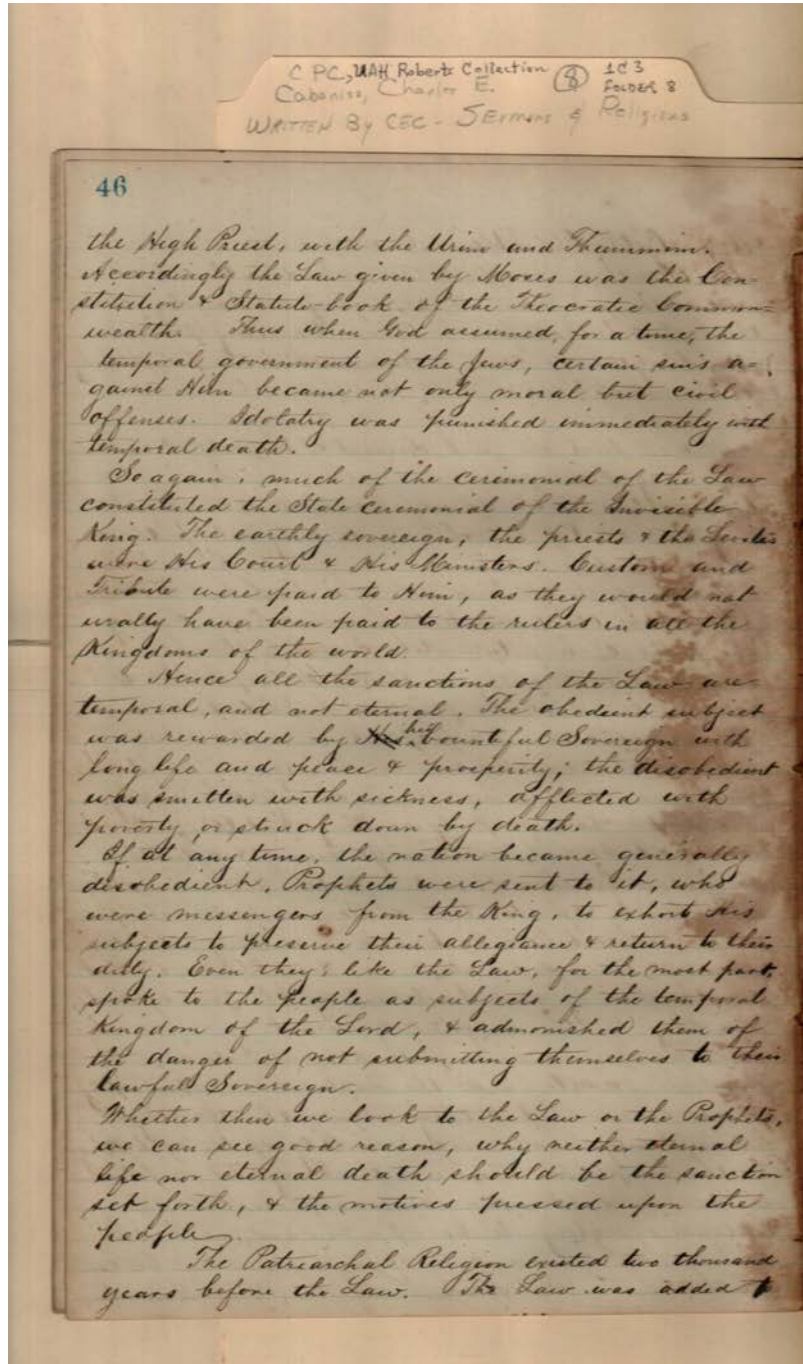 CPC, UAH Roberts Collection ⑧ 1C3
Cabaniss, Charles E. FOLDER 8
WRITTEN By CEC - SERMONS & Religious
46
the High Priest, with the Urim and Thummim.
Accordingly the Law given by Moses was the Con-
stitution & Statute-book of the Theocratic Common=
wealth. Thus when God assumed, for a time, the
temporal government of the Jews, certain sins a=
gainst Him became not only moral but civil
offenses. Idolatry was punished immediately with
temporal death.
So again, much of the cerimonial of the Law
constituted the State ceremonial of the Invisible
King. The earthly sovereign, the priests & the Levites
were His Court & His Ministers. Custom and
Tribute were paid to Him, as they would nat
urally have been paid to the rulers in all the
Kingdoms of the world.
Hence all the sanctions of the Law are
temporal, and not eternal. The obedient subject
was rewarded by his bountiful Sovereign with
long life and peace & prosperity; the disobedient
was smitten with sickness, afflicted with
poverty, or struck down by death.
If at any time, the nation became generally
disobedient, Prophets were sent to it, who
were messengers from the King, to exhort His
subjects to preserve their allegiance & return to their
duty. Even they, like the Law, for the most part,
spoke to the people as subjects of the temporal
Kingdom of the Lord, & admonished them of
the danger of not submitting themselves to their
lawful Sovereign.
Whether then we look to the Law or the Prophets,
we can see good reason, why neither eternal
life nor eternal death should be the sanction
set forth, & the motives pressed upon the
people.
The Patriarchal Religion existed two thousand
years before the Law. The Law was added to